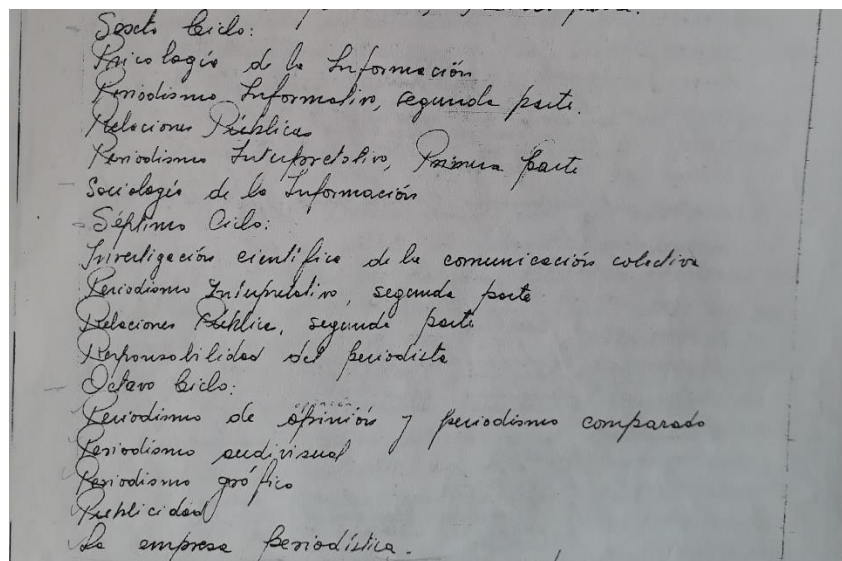 Sexto Ciclo:
Psicología de la Información
Periodismo Informativo, segunda parte.
Relaciones Públicas
Periodismo Interpretativo, Primera parte
Sociología de la Información
Séptimo Ciclo:
Investigación científica de la comunicación colectiva
Periodismo Interpretativo, segunda parte
Relaciones Pública, segunda parte
Responsabilidad del periodista
Octavo Ciclo:
Periodismo de opinión y periodismo comparado
Periodismo audivisual
Periodismo gráfico
Publicidad
La empresa periodística.